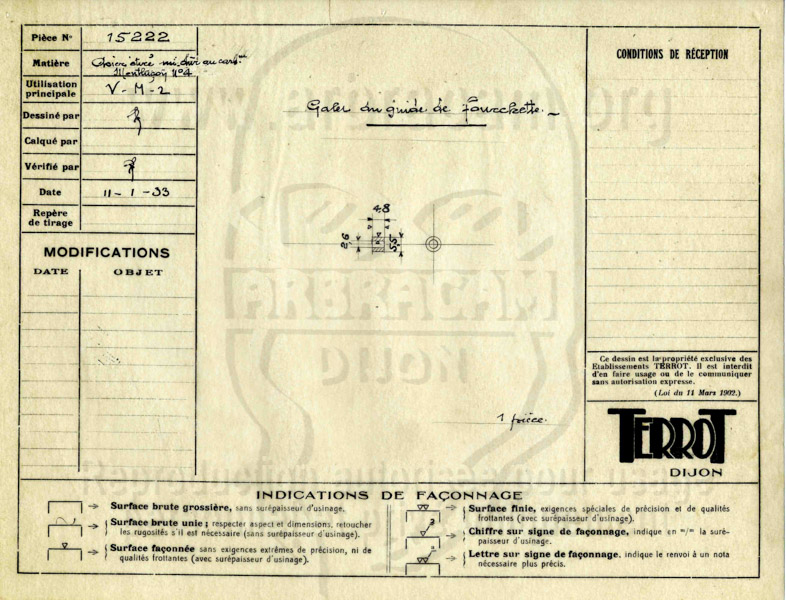 Pièce Nº 15222
Matière Acier étiré mi-dur au carb.
Montluçon Nº4
Utilisation principale V-M-2
Dessiné par
Calqué par
Vérifié par
Date 11-1-33
Repère de tirage
MODIFICATIONS
DATE OBJET
Galet du guide de fourchette
4,8
2,6
5,5
1 pièce.
CONDITIONS DE RÉCEPTION
Ce dessin est la propriété exclusive des
Etablissements TERROT. Il est interdit
d'en faire usage ou de le communiquer
sans autorisation expresse.
(Loi du 11 Mars 1902.)
TERROT
DIJON
www.arbracam.org
ARBRACAM
DIJON
Reproduction autorisée pour usage
INDICATIONS DE FAÇONNAGE
Surface brute grossière, sans surépaisseur d'usinage.
Surface brute unie ; respecter aspect et dimensions, retoucher
les rugosités s'il est nécessaire (sans surépaisseur d'usinage).
Surface façonnée sans exigences extrêmes de précision, ni de
qualités frottantes (avec surépaisseur d'usinage).
Surface finie, exigences spéciales de précision et de qualités
frottantes (avec surépaisseur d'usinage).
Chiffre sur signe de façonnage, indique en m/m la suré-
paisseur d'usinage.
Lettre sur signe de façonnage, indique le renvoi à un nota
nécessaire plus précis.